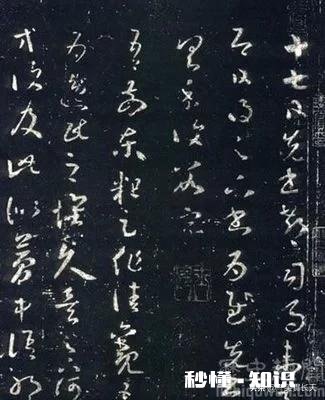 十七日先書郗司馬未去
即日得足下書為慰先書
以具示復數字
吾前東粗足作佳觀吾
為逸民之懷久矣足下何以
方復及此似夢中語耶
秒懂·知识